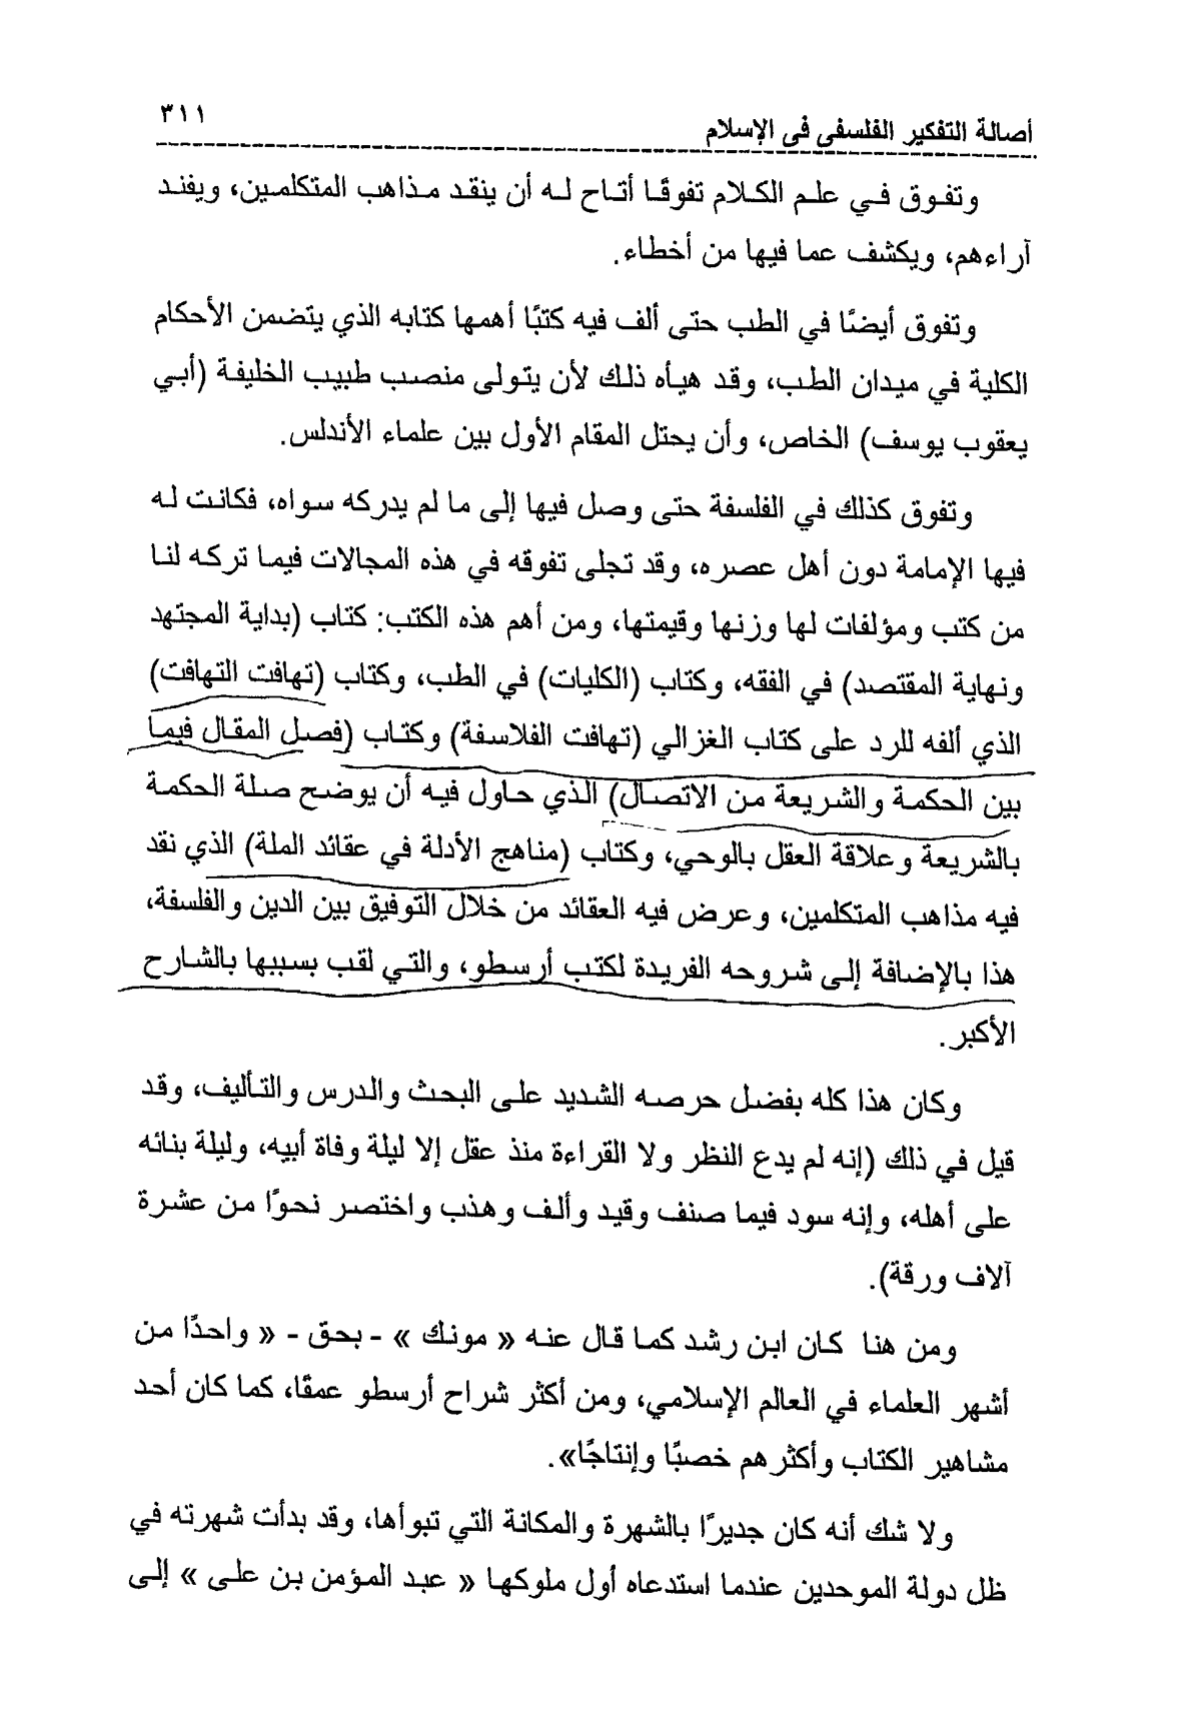 أصالة التفكير الفلسفى فى الإسلام
٣١١
وتفوق في علم الكلام تفوقًا أتاح له أن ينقد مذاهب المتكلمين، ويفند
آراءهم، ويكشف عما فيها من أخطاء.
وتفوق أيضًا في الطب حتى ألف فيه كتبًا أهمها كتابه الذي يتضمن الأحكام
الكلية في ميدان الطب، وقد هيأه ذلك لأن يتولى منصب طبيب الخليفة (أبي
يعقوب يوسف) الخاص، وأن يحتل المقام الأول بين علماء الأندلس.
وتفوق كذلك في الفلسفة حتى وصل فيها إلى ما لم يدركه سواه، فكانت له
فيها الإمامة دون أهل عصره، وقد تجلى تفوقه في هذه المجالات فيما تركه لنا
من كتب ومؤلفات لها وزنها وقيمتها، ومن أهم هذه الكتب: كتاب (بداية المجتهد
ونهاية المقتصد) في الفقه، وكتاب (الكليات) في الطب، وكتاب (تهافت التهافت)
الذي ألفه للرد على كتاب الغزالي (تهافت الفلاسفة) وكتاب (فصل المقال فيما
بين الحكمة والشريعة من الاتصال) الذي حاول فيه أن يوضح صلة الحكمة
بالشريعة وعلاقة العقل بالوحي، وكتاب (مناهج الأدلة في عقائد الملة) الذي نقد
فيه مذاهب المتكلمين، وعرض فيه العقائد من خلال التوفيق بين الدين والفلسفة،
هذا بالإضافة إلى شروحه الفريدة لكتب أرسطو، والتي لقب بسببها بالشارح
الأكبر.
وكان هذا كله بفضل حرصه الشديد على البحث والدرس والتأليف، وقد
قيل في ذلك (إنه لم يدع النظر ولا القراءة منذ عقل إلا ليلة وفاة أبيه، وليلة بنائه
على أهله، وإنه سود فيما صنف وقيد وألف وهذب واختصر نحوًا من عشرة
آلاف ورقة).
ومن هنا كان ابن رشد كما قال عنه « مونك » - بحق - « واحدًا من
أشهر العلماء في العالم الإسلامي، ومن أكثر شراح أرسطو عمقًا، كما كان أحد
مشاهير الكتاب وأكثرهم خصبًا وإنتاجًا».
ولا شك أنه كان جديرًا بالشهرة والمكانة التي تبوأها، وقد بدأت شهرته في
ظل دولة الموحدين عندما استدعاه أول ملوكها « عبد المؤمن بن على » إلى